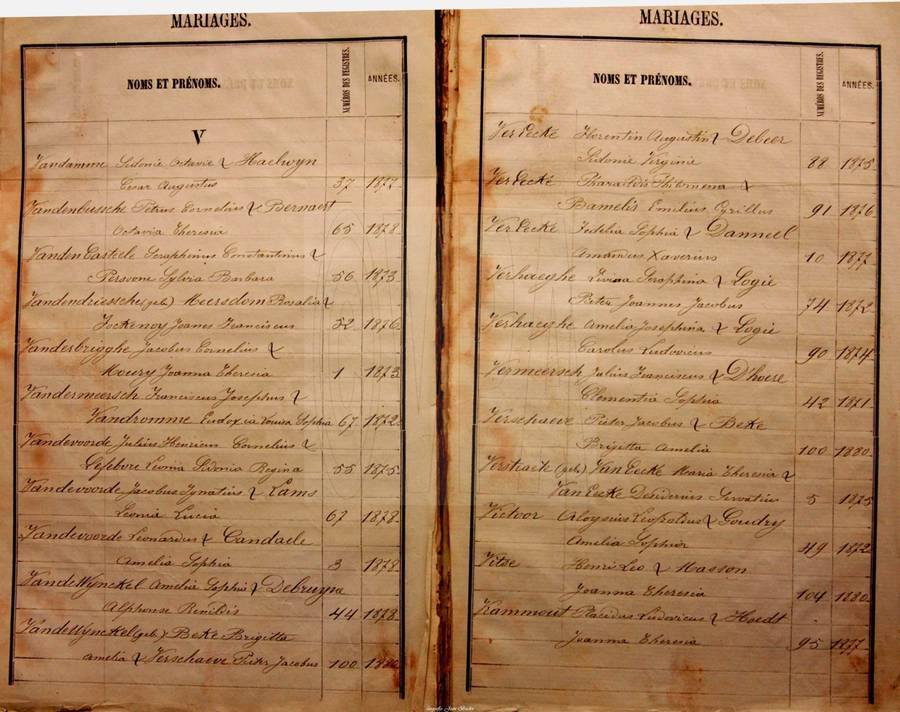 MARIAGES.
NOMS ET PRÉNOMS. NUMÉROS DES REGISTRES. ANNÉES.
V
Vandamme Sidonie Octavie & Haelwyn
Cesar Augustus 37 1877
Vandenbussche Petrus Cornelius & Bernaert
Octavia Theresia 65 1878
VandenCasteele Seraphinus Constantinus &
Persoone Sylvia Barbara 56 1873
Vandendriessche (geb) Meersdom Rosalia &
Joanes Franciscus 52 1876
Vanderbrigghe Jacobus Cornelius &
Moury Joanna Theresia 1 1873
Vandermeersch Franciscus Josephus &
Vandromme Eudoxia Louisa Sophia 67 1872
Vandevoorde Julius Henricus Cornelius &
Lefebvre Leonia Sidonia Regina 55 1875
Vandevoorde Jacobus Ignatius & Lams
Leonia Lucia 67 1878
Vandevoorde Leonardus & Candaele
Amelia Sophia 3 1878
VandeWynckel Amelia Sophia & Debruyne
Alphonse 44 1878
VandeWynckel (geb.) Beke Brigitta
Amelia & Verschaeve Pieter Jacobus 100 1880
MARIAGES.
NOMS ET PRÉNOMS. NUMÉROS DES REGISTRES. ANNÉES.
VerEecke Florentin Augustin & Debeer
Sidonie Virginie 88 1875
VerEecke Pharaildis Philomena &
Bamelis Emilius Cyrillus 91 1876
VerEecke Fidelia Sophia & Danneel
Amandus Xaverius 10 1877
Verhaeghe Liviana Seraphina & Logie
Pieter Joannes Jacobus 74 1872
Verhaeghe Amelia Josephina & Logie
Carolus Ludovicus 90 1874
Vermeersch Julius Franciscus & D'hoere
Clementia Sophia 42 1871
Verschaeve Pieter Jacobus & Beke
Brigitta Amelia 100 1880
Verstraete (geb) VanEecke Maria Theresia &
VanEecke Desiderius Servatius 5 1875
Victoor Aloysius Leopoldus & Goudry
Amelia Sophia 49 1872
Vitse Henri Leo & Masson
Joanna Theresia 104 1880
Vrammout Placidus Ludovicus & Hoedt
Joanna Theresia 95 1877